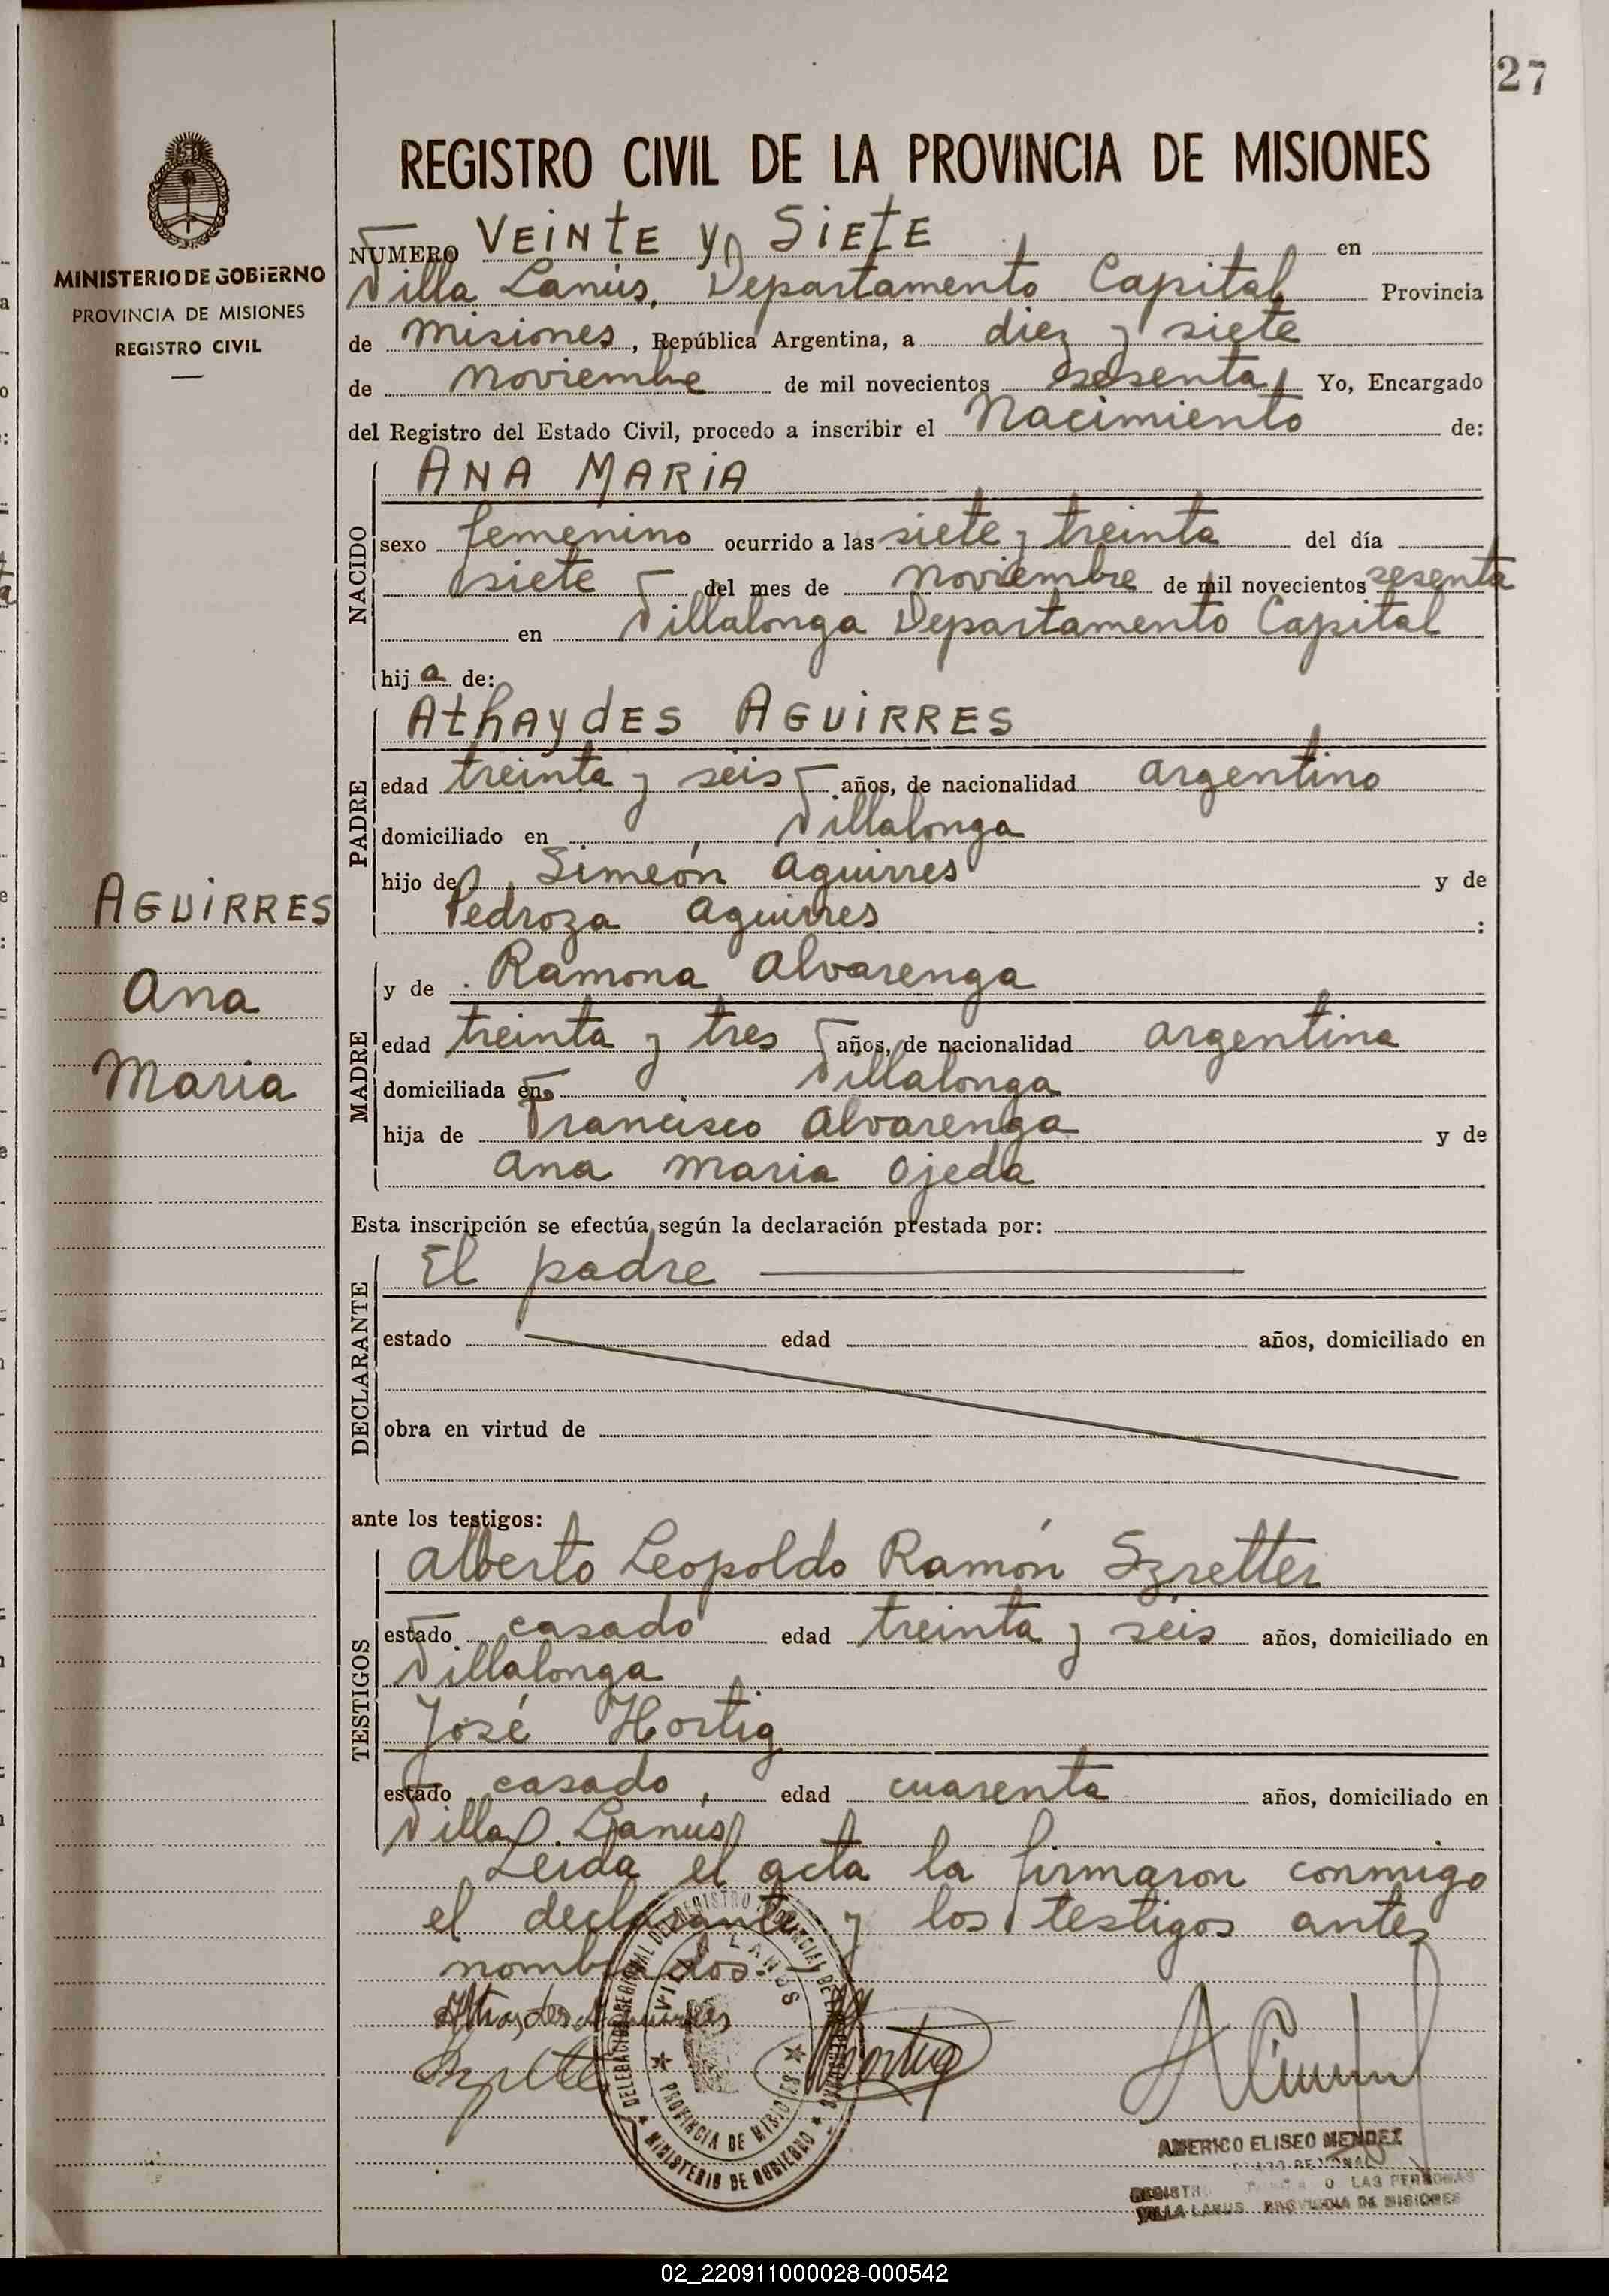 27
REGISTRO CIVIL DE LA PROVINCIA DE MISIONES
MINISTERIO DE GOBIERNO
PROVINCIA DE MISIONES
REGISTRO CIVIL
NUMERO VEINTE y SIETE en
Villa Lanús, Departamento Capital Provincia
de Misiones, República Argentina, a diez y siete
de noviembre de mil novecientos sesenta, Yo, Encargado
del Registro del Estado Civil, procedo a inscribir el Nacimiento de:
NACIDO
ANA MARIA
sexo femenino ocurrido a las siete y treinta del día
siete del mes de noviembre de mil novecientos sesenta
en Villalonga Departamento Capital
hija de:
PADRE
Athaydes AGUIRRES
edad treinta y seis años, de nacionalidad argentino
domiciliado en Villalonga
hijo de Simeón Aguirres y de
Pedroza Aguirres :
AGUIRRES
Ana
Maria
MADRE
y de Ramona Alvarenga
edad treinta y tres años, de nacionalidad argentina
domiciliada en Villalonga
hija de Francisco Alvarenga y de
Ana Maria Ojeda
Esta inscripción se efectúa según la declaración prestada por:
DECLARANTE
El padre
estado edad años, domiciliado en
obra en virtud de
ante los testigos:
TESTIGOS
Alberto Leopoldo Ramón Szretter
estado casado edad treinta y seis años, domiciliado en
Villalonga
José Hortig
estado casado, edad cuarenta años, domiciliado en
Villa Lanús.
Leída el acta la firmaron conmigo
el declarante y los testigos antes
nombrados.
Hortig
DELEGACION REGIONAL DEL REGISTRO PROVINCIAL DE LAS PERSONAS
VILLA LANUS
PROVINCIA DE MISIONES
MINISTERIO DE GOBIERNO
AMERICO ELISEO MENDEZ
LAS PERSONAS
VILLA LANUS PROVINCIA DE MISIONES
02_220911000028-000542